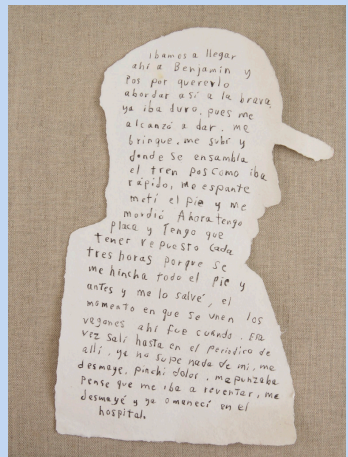 ibamos a llegar
ahí a Benjamín y
pos por quererlo
abordar así a la brava,
ya iba duro, pues me
alcanzó a dar. me
brinque, me subí y
donde se ensambla
el tren pos como iba
rápido, me espante
metí el pie y me
mordió Ahora tengo
placa y Tengo que
tener repuesto cada
tres horas porque se
me hincha todo el pie y
antes y me lo salvé, el
momento en que se unen los
vagones ahí fue cuando. Esa
vez salí hasta en el periódico de
allí, ya no supe nada de mi, me
desmaye, pinchi dolor, me punzaba
Pense que me iba a reventar, me
desmayé y ya amanecí en el
hospital.